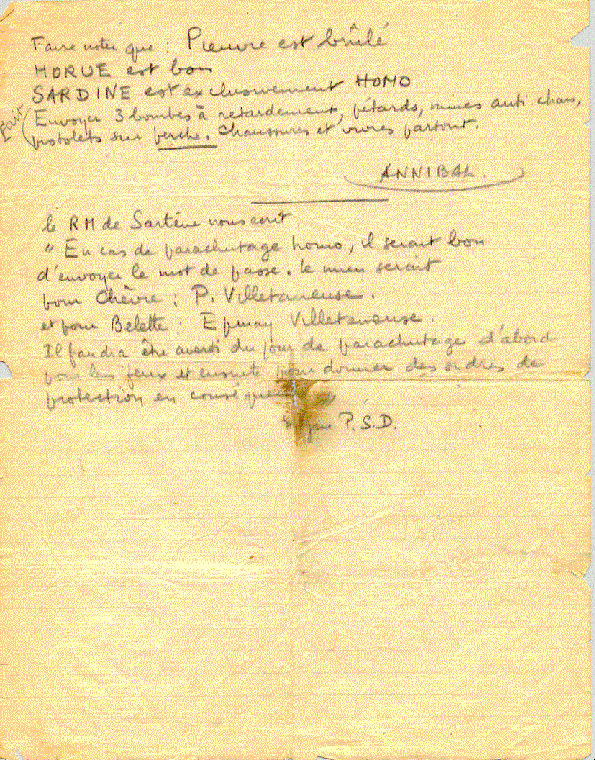 Faire noter que : Pieuvre est brûlé
MORUE est bon
SARDINE est exclusivement HOMO
(Envoyer 3 bombes à retardement, pétards, mines anti chars,
pistolets sur perche. Chaussures et vivres partout.
ANNIBAL.
le RM de Sartène nous écrit
" En cas de parachutage homo, il serait bon
d'envoyer le mot de passe. le mien serait
pour Chèvre : P. Villetaneuse.
et pour Belette : Epinay Villetaneuse.
Il faudra être averti du jour de parachutage d'abord
pour les feux et ensuite pour donner des ordres de
protection en conséquence
Signé P.S.D.